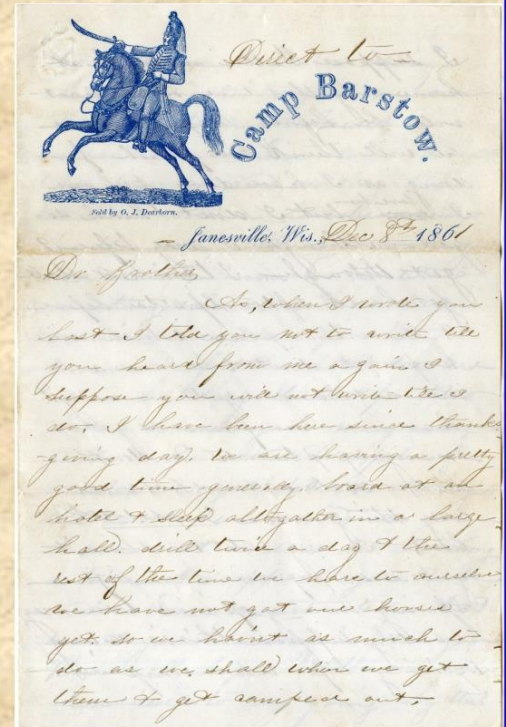 Direct to
Camp Barstow.
Sold by O. J. Dearborn.
Janesville, Wis., Dec 8th 1861
Dr Brother
As, when I wrote you
last I told you not to write till
you heard from me again I
suppose you will not write till I
do. I have been here since thanks-
giving day. We are having a pretty
good time generaly. board at an
hotel & sleep altogather in a large
hall. drill twice a day & the
rest of the time we have to ourselves
we have not got our horses
yet so we havnt as much to
do as we shall when we get
them & get camped out.